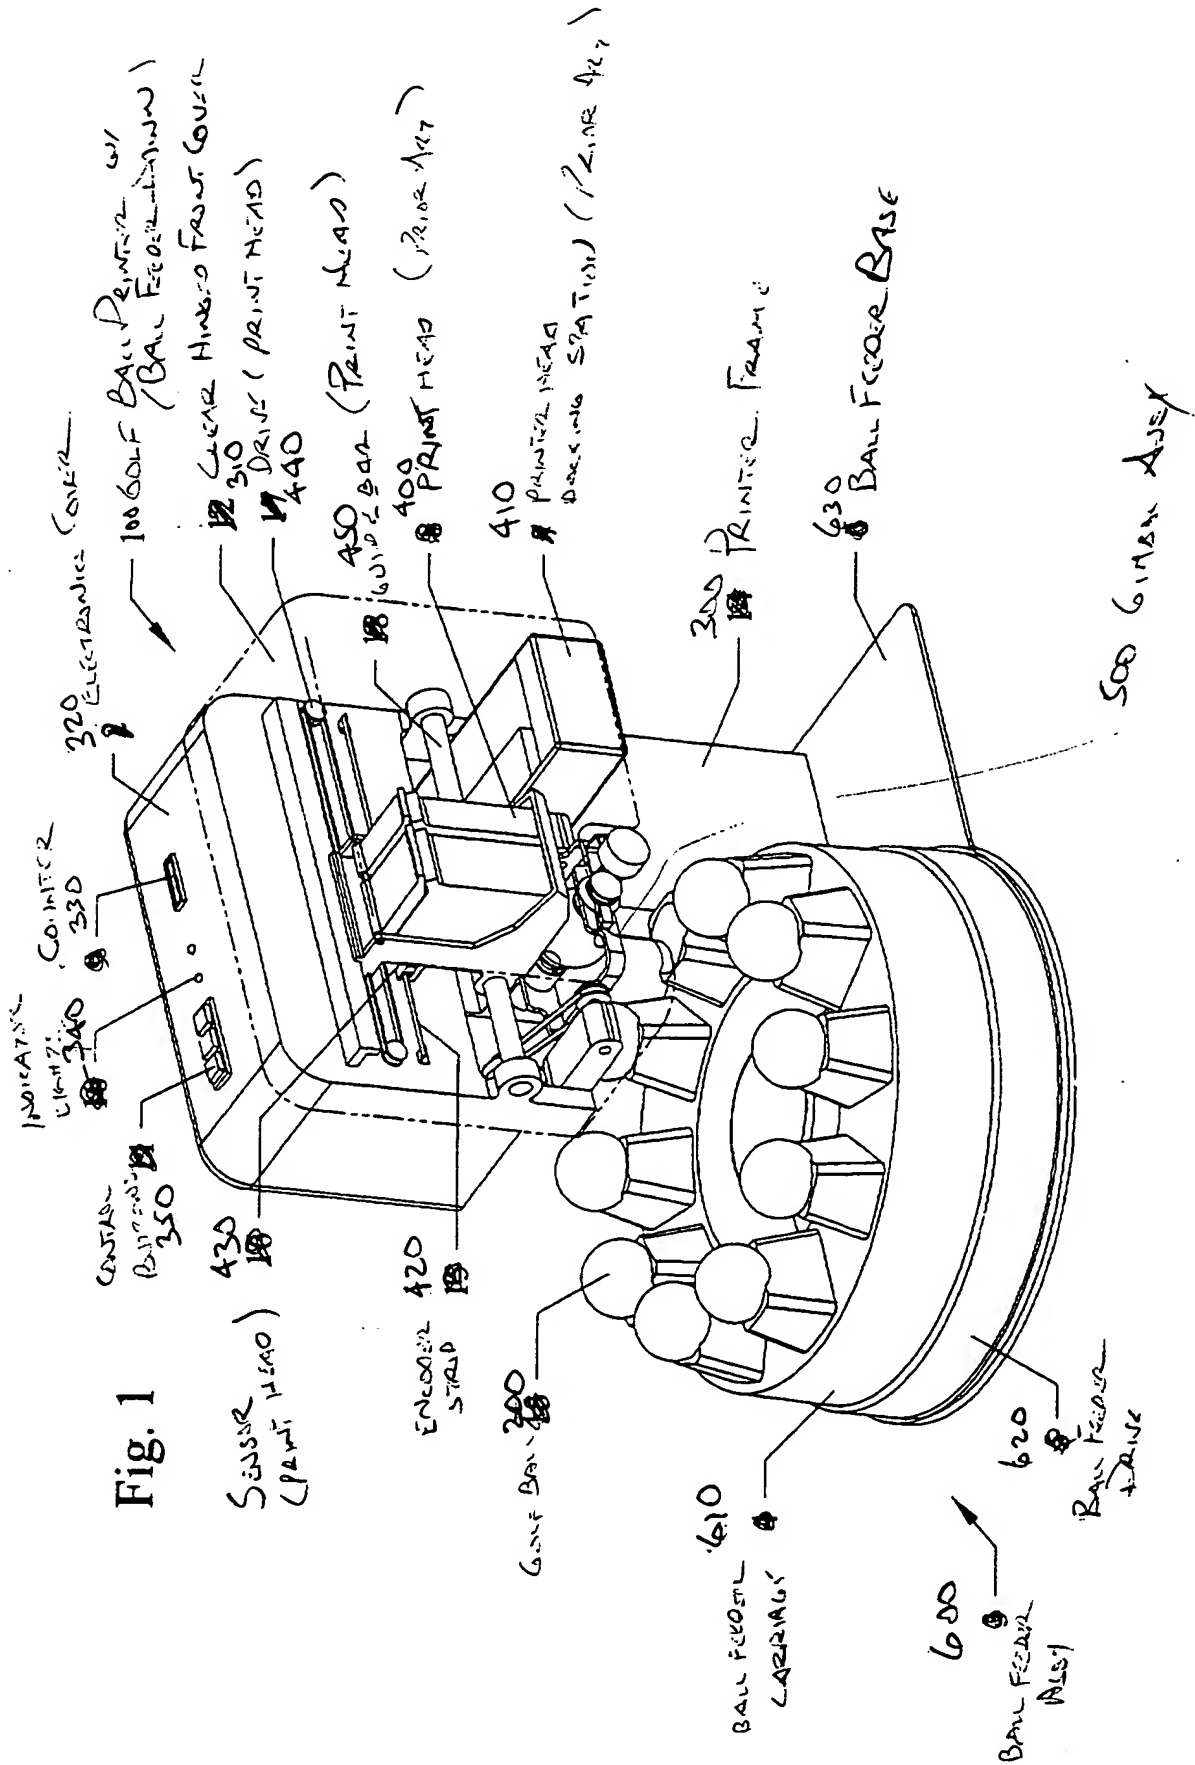 Fig. 1
100 GOLF BALL PRINTER W/
(BALL FEEDER SHOWN)
320
ELECTRONICS COVER
CLEAR HINGED FRONT COVER
310
DRIVE (PRINT HEAD)
440
450
GUIDE BAR (PRINT HEAD)
400
PRINT HEAD (PRIOR ART)
410
PRINTER HEAD
DOCKING STATION (PRIOR ART)
300 PRINTER FRAME
630
BALL FEEDER BASE
500 GIMBAL ASSY
COUNTER
330
INDICATOR
LIGHTS
340
CONTROL
BUTTONS
350
430
SENSOR
(PRINT HEAD)
ENCODER 420
STRIP
200
GOLF BALL
610
BALL FEEDER
CARRIAGE
620
BALL FEEDER
DRIVE
600
BALL FEEDER
ASSY